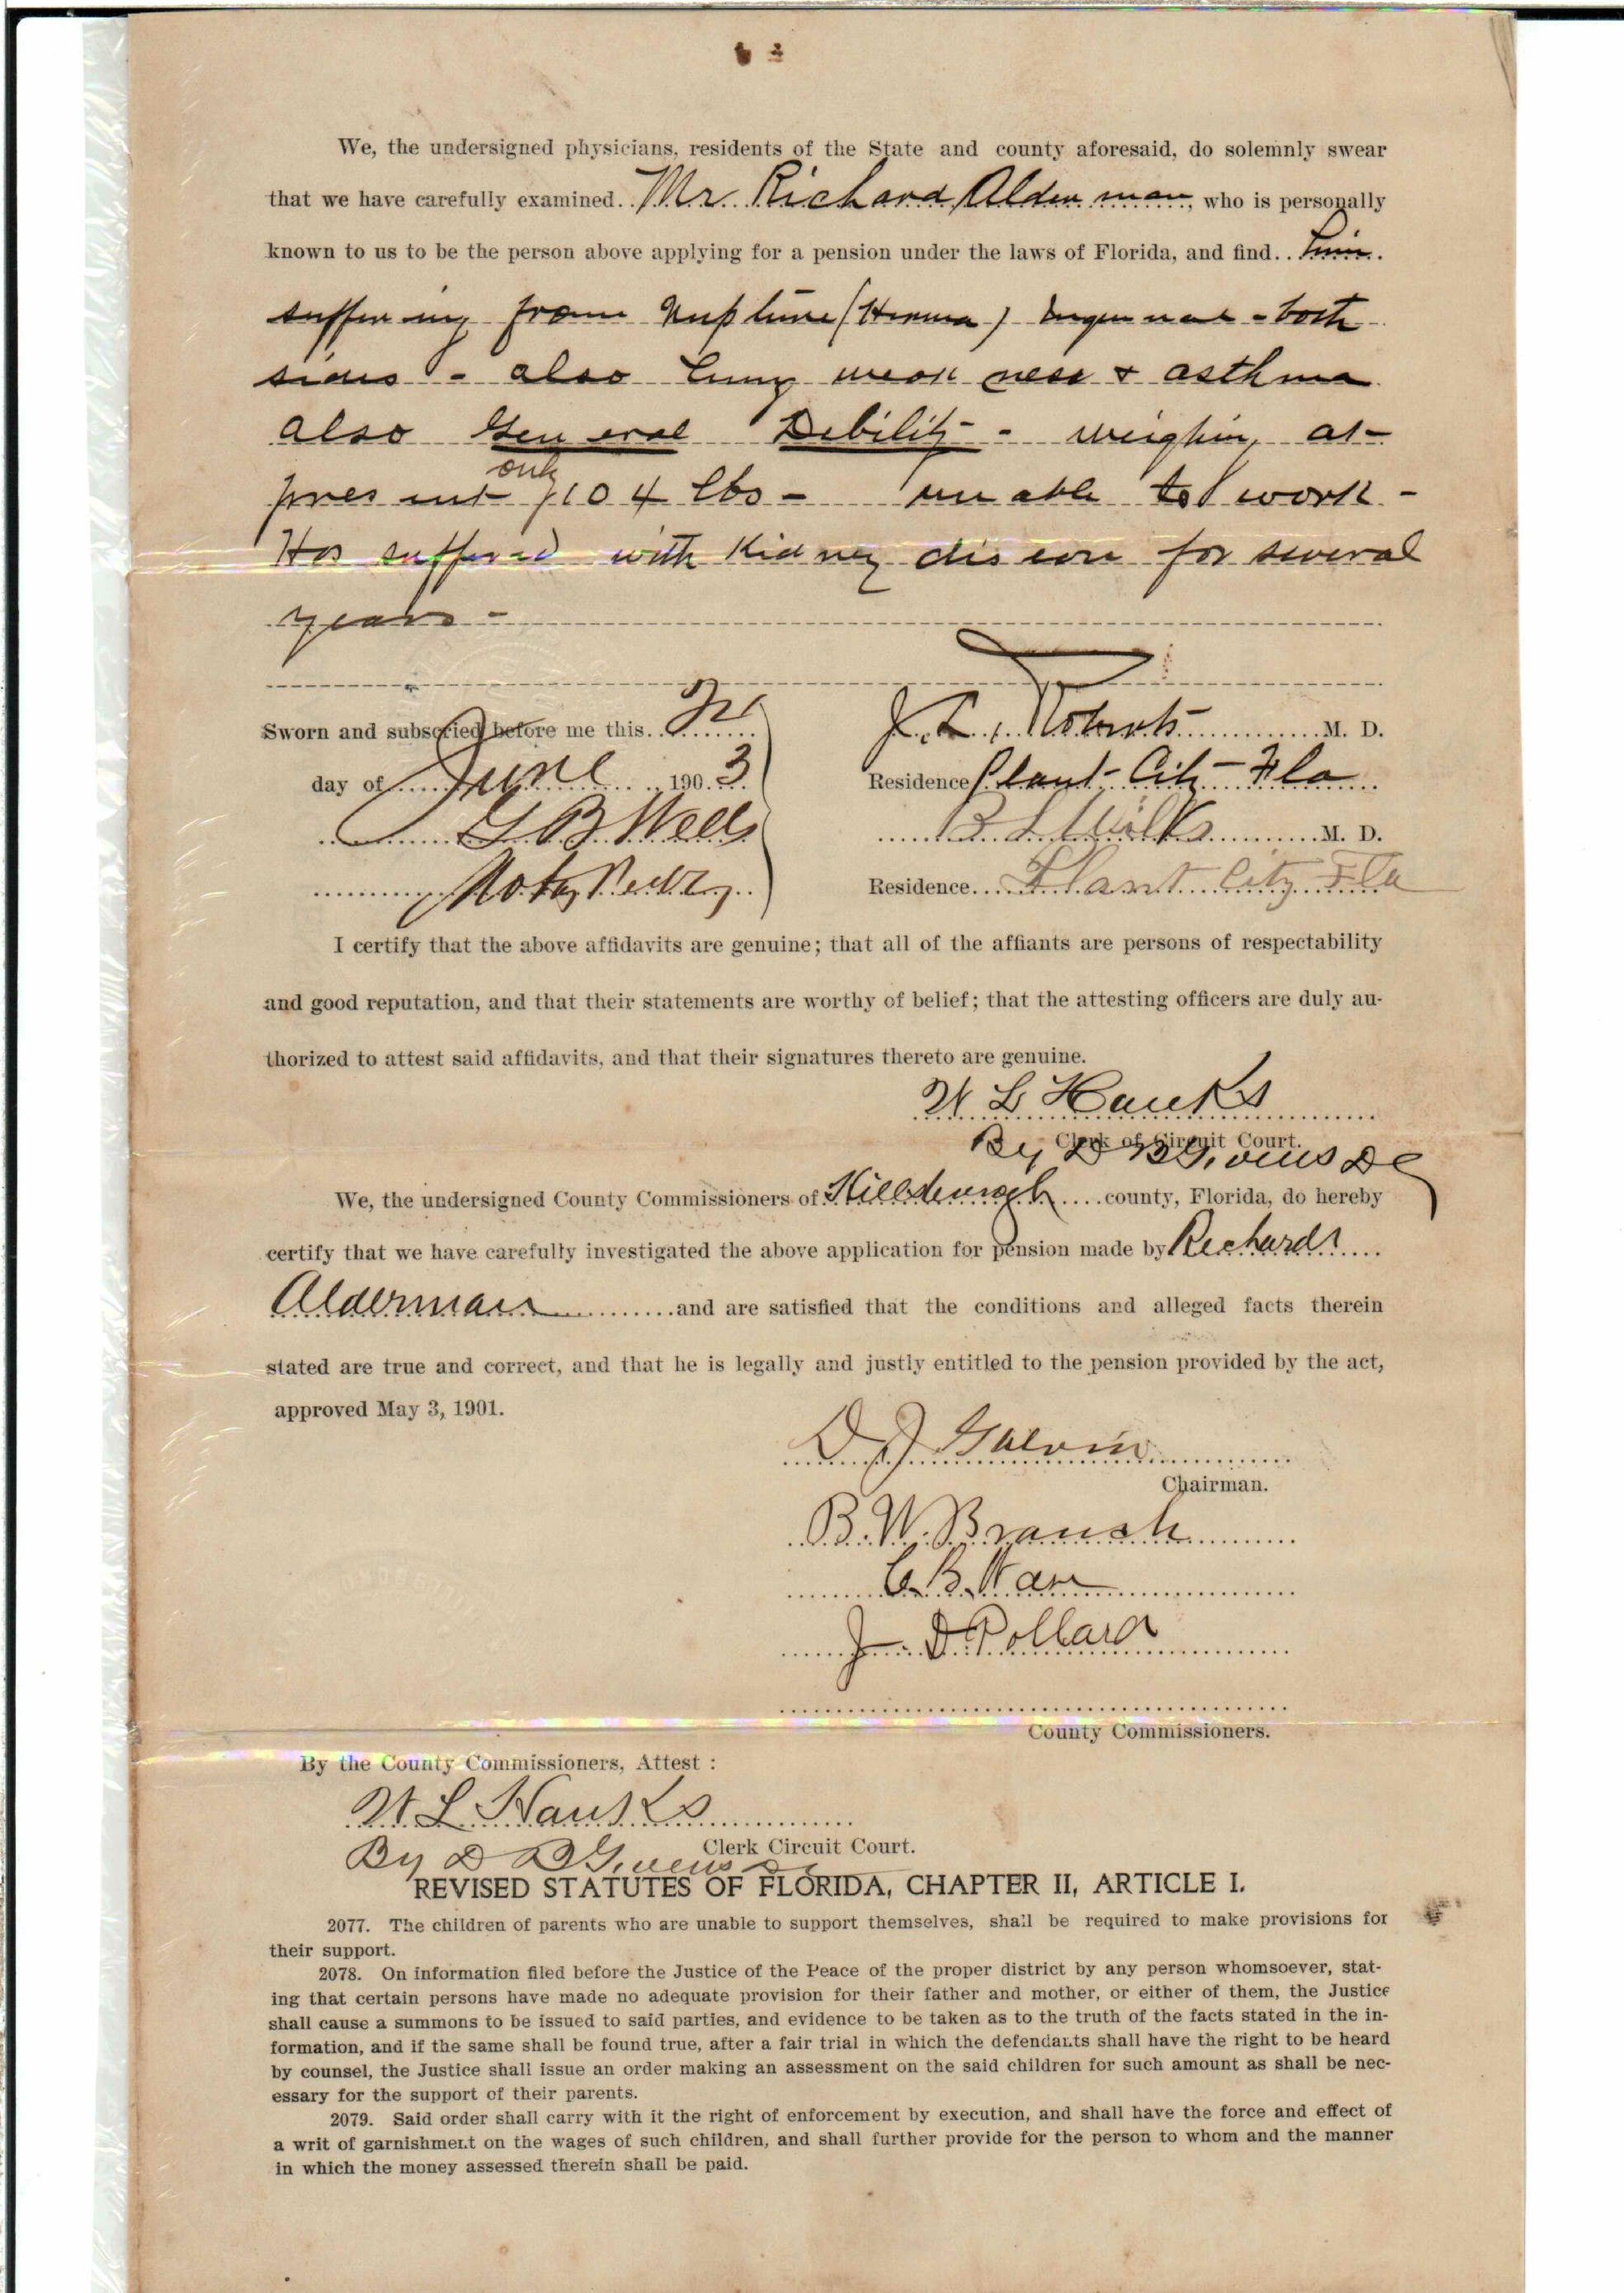 We, the undersigned physicians, residents of the State and county aforesaid, do solemnly swear
that we have carefully examined. Mr. Richard Alderman, who is personally
known to us to be the person above applying for a pension under the laws of Florida, and find.. him
suffering from Rupture (Hernia) Inguinal - both
sides - also Lung weakness & asthma
also General Debility - weighing at
only
present 104 lbs - unable to work -
Has suffered with Kidney disease for several
years -
Sworn and subscried before me this
day of June 1903
G B Wells
Notary Public
J. L. Roberts M. D.
Residence Plant City Fla
B L Wilks M. D.
Residence Plant City Fla
I certify that the above affidavits are genuine; that all of the affiants are persons of respectability
and good reputation, and that their statements are worthy of belief; that the attesting officers are duly au-
thorized to attest said affidavits, and that their signatures thereto are genuine.
W L Hanks
Clerk of Circuit Court.
By D B Givens DC
We, the undersigned County Commissioners of Hillsborough county, Florida, do hereby
certify that we have carefully investigated the above application for pension made by Richard
Alderman and are satisfied that the conditions and alleged facts therein
stated are true and correct, and that he is legally and justly entitled to the pension provided by the act,
approved May 3, 1901.
D J Galvin
Chairman.
B. W. Branch
C. B. 
J. D Pollard
County Commissioners.
By the County Commissioners, Attest :
W L Hanks
Clerk Circuit Court.
By D B Givens DC
REVISED STATUTES OF FLORIDA, CHAPTER II, ARTICLE I.
2077. The children of parents who are unable to support themselves, shall be required to make provisions for
their support.
2078. On information filed before the Justice of the Peace of the proper district by any person whomsoever, stat-
ing that certain persons have made no adequate provision for their father and mother, or either of them, the Justice
shall cause a summons to be issued to said parties, and evidence to be taken as to the truth of the facts stated in the in-
formation, and if the same shall be found true, after a fair trial in which the defendants shall have the right to be heard
by counsel, the Justice shall issue an order making an assessment on the said children for such amount as shall be nec-
essary for the support of their parents.
2079. Said order shall carry with it the right of enforcement by execution, and shall have the force and effect of
a writ of garnishment on the wages of such children, and shall further provide for the person to whom and the manner
in which the money assessed therein shall be paid.